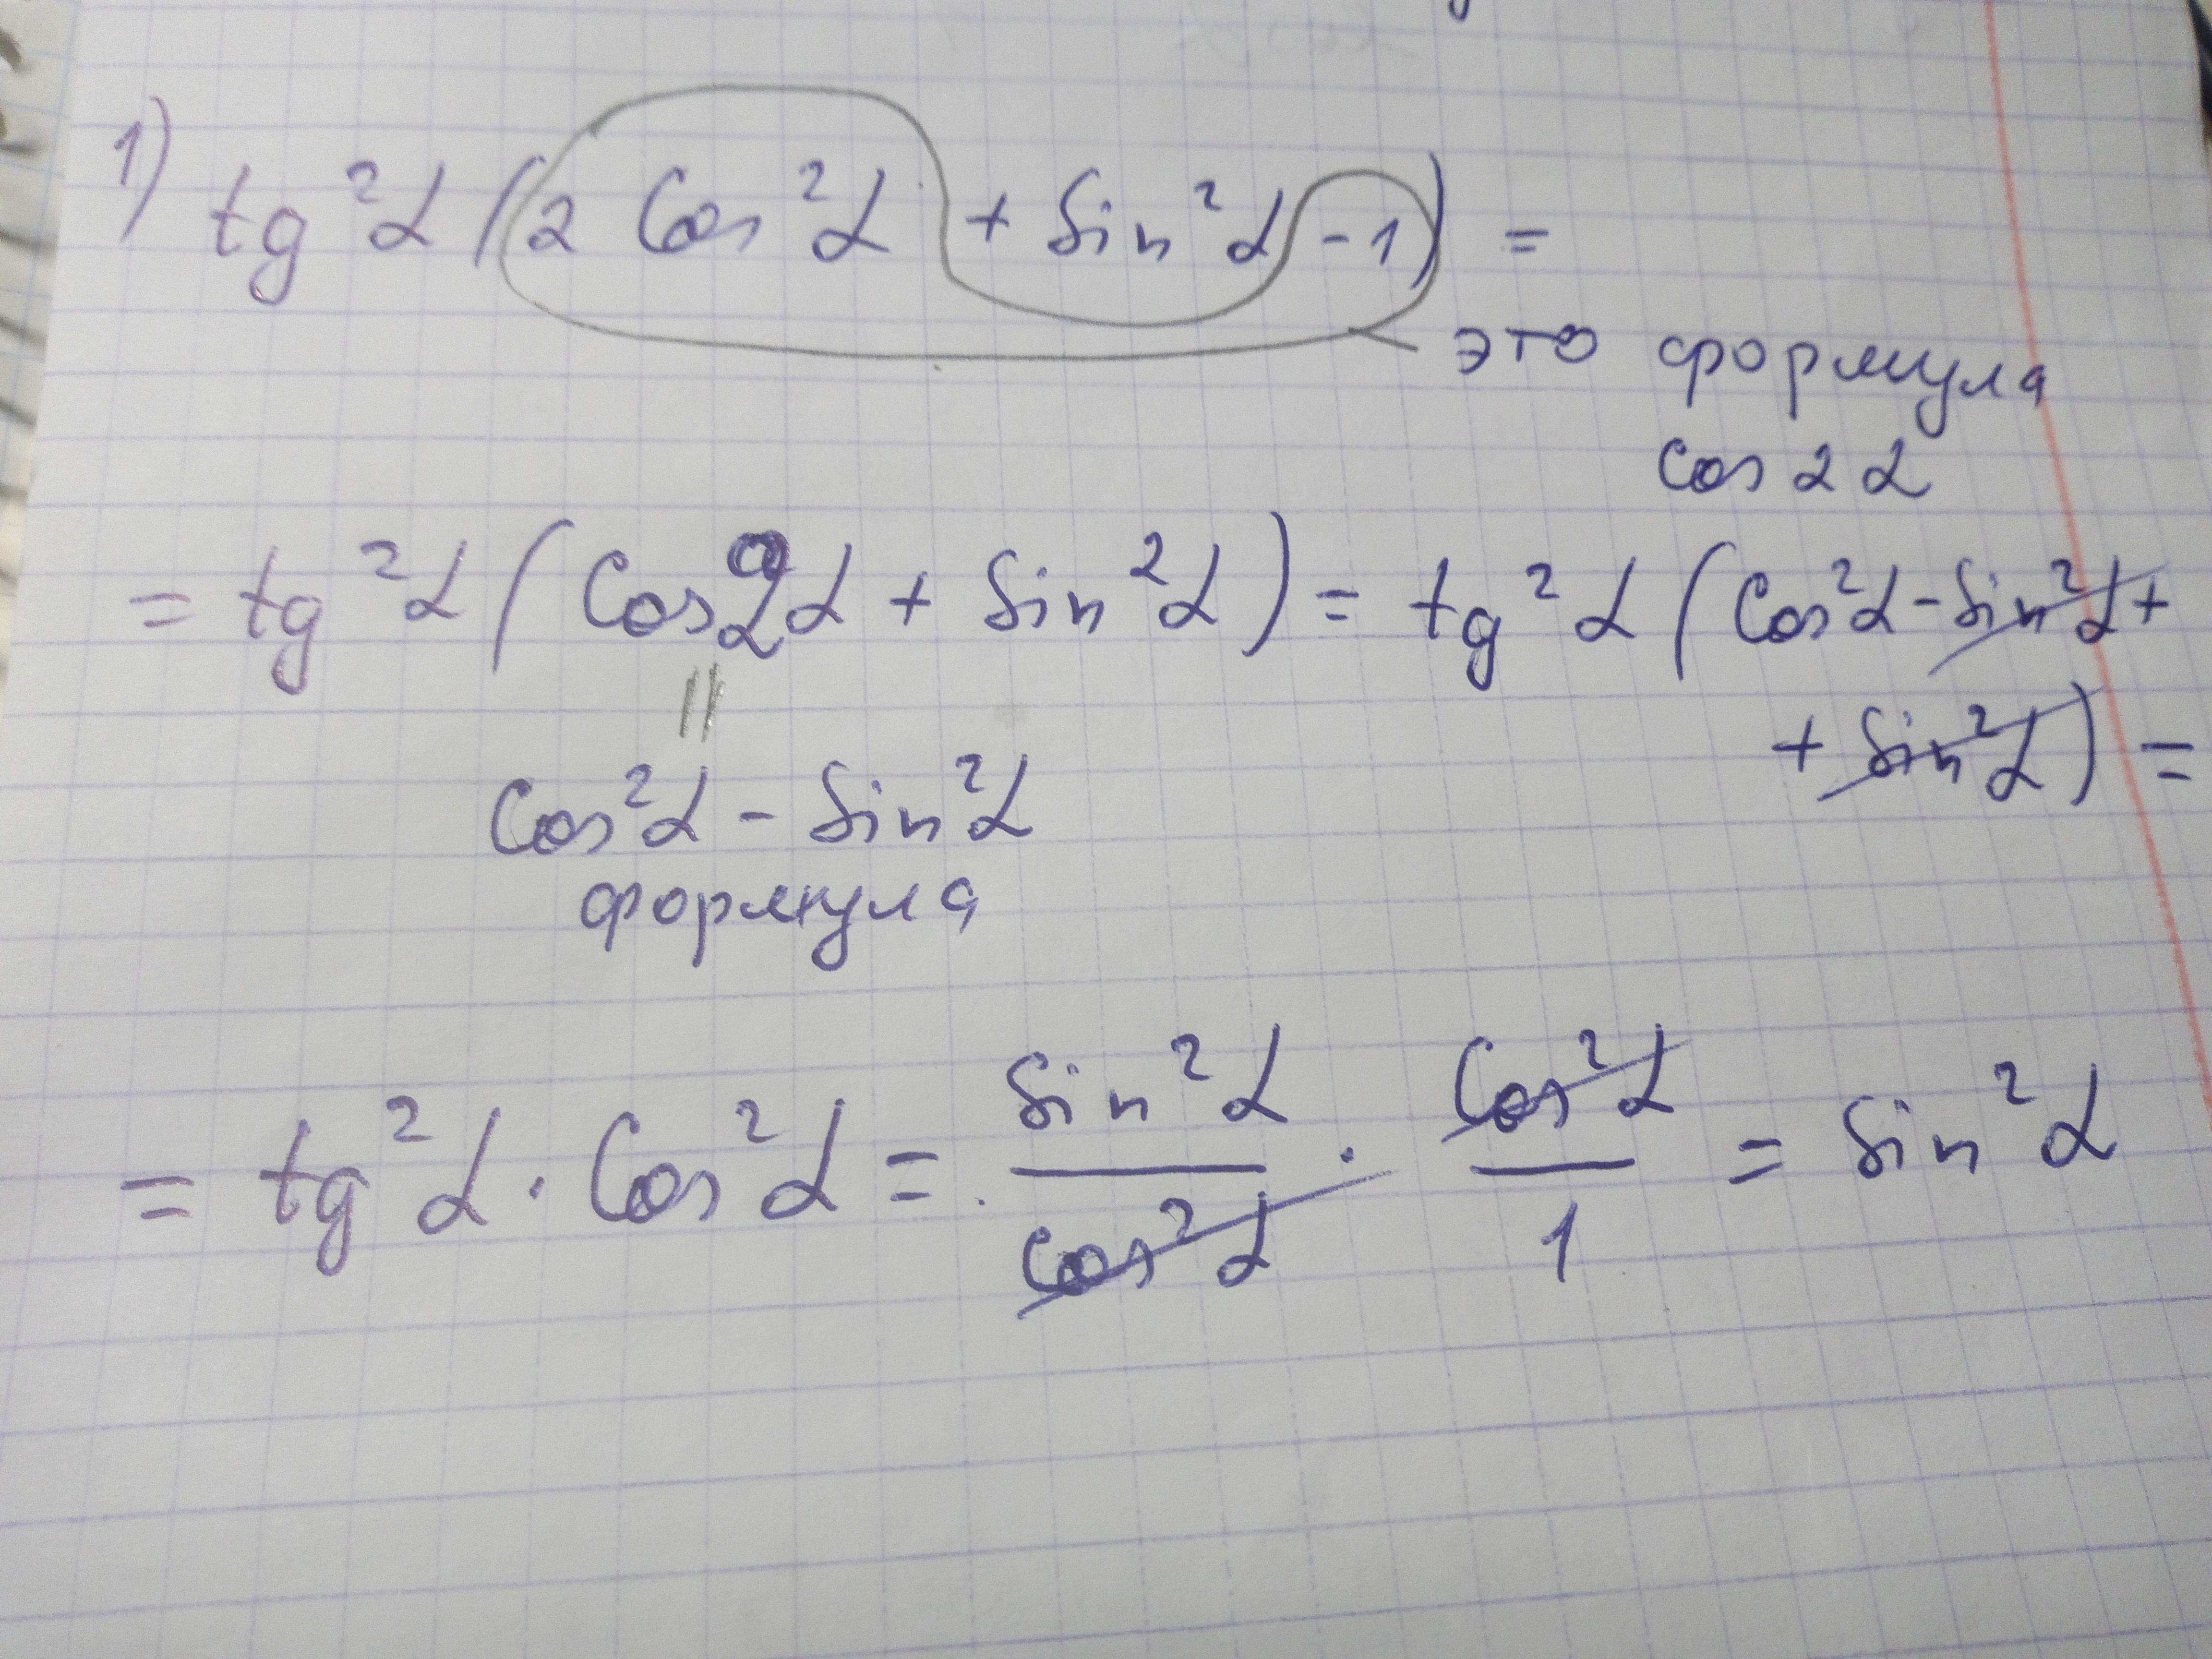 1) tg²α (2 Cos²α + Sin²α - 1) =
это формула
Cos 2α
= tg²α (Cos2α + Sin²α) = tg²α (Cos²α - Sin²α +
+ Sin²α) =
||
Cos²α - Sin²α
формула
= tg²α · Cos²α = Sin²α / Cos²α · Cos²α / 1 = Sin²α